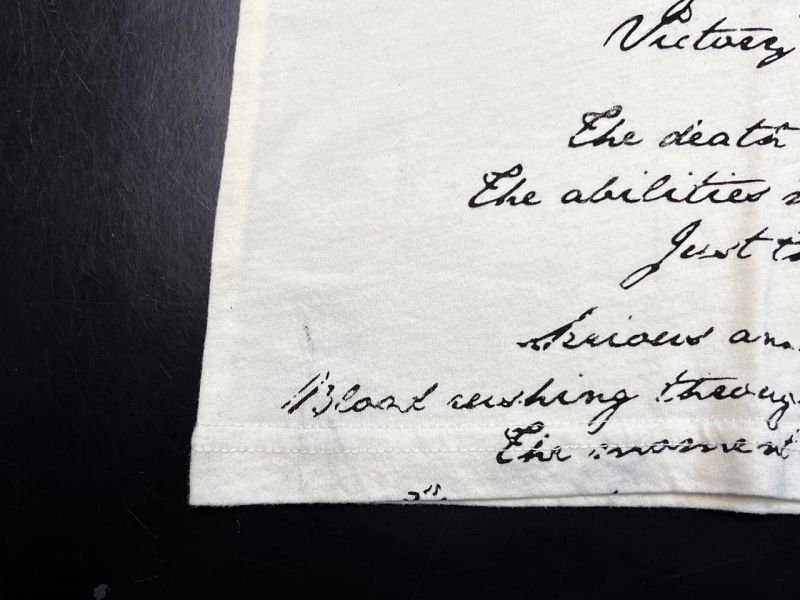 Victory
The death
The abilities
Just
Serious
Blood rushing through
The moment